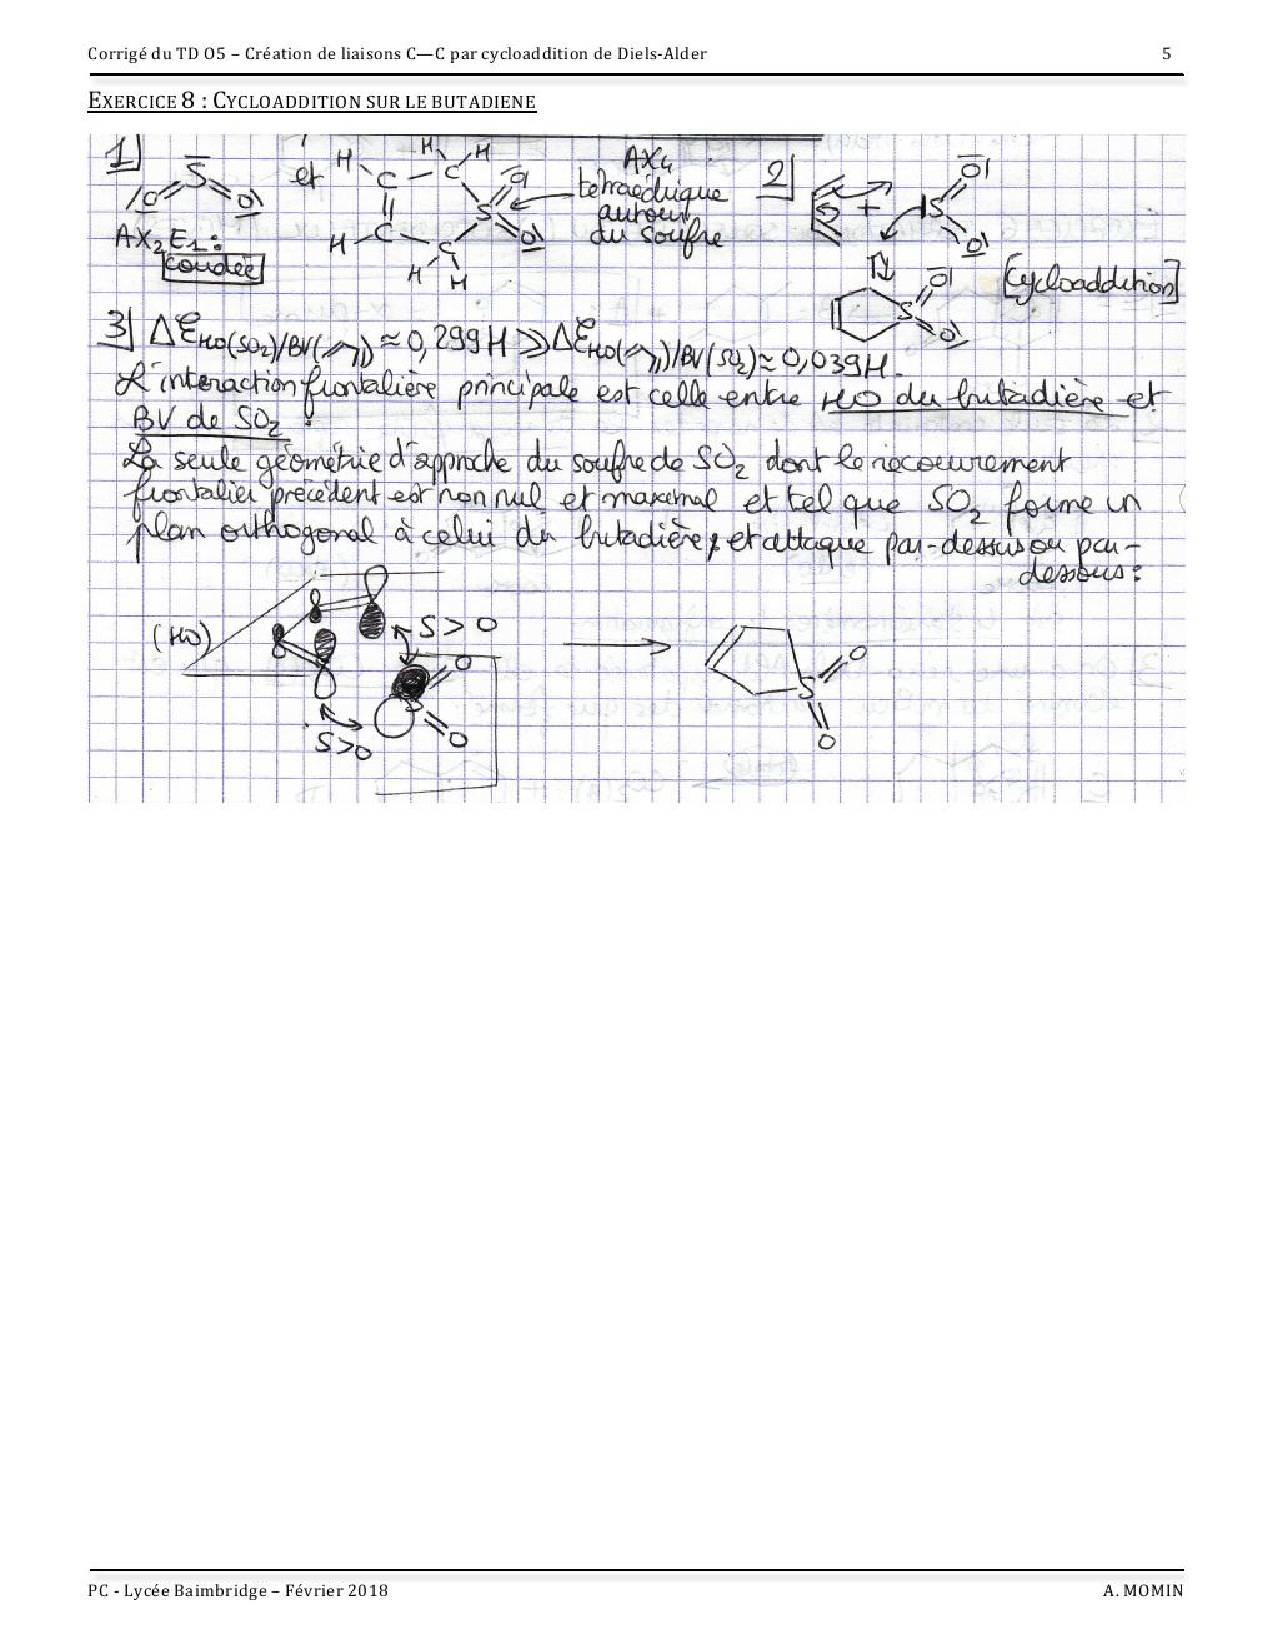 Corrigé du TD O5 – Création de liaisons C—C par cycloaddition de Diels-Alder 5
EXERCICE 8 : CYCLOADDITION SUR LE BUTADIENE
1) S O O et H H H C C C C H H H S O O AX4 tétraédrique autour du soufre
AX2E1 : coudée
2) + S O O
S O O [Cycloaddition]
3) ΔƐHO(SO2)/BV( ) ≈ 0,299H >> ΔƐHO( )/BV(SO2) ≈ 0,039H.
L'interaction frontalière principale est celle entre HO du butadière et
BV de SO2 !
La seule géométrie d'approche du soufre de SO2 dont le recouvrement
frontalier précédent est non nul et maximal et tel que SO2 forme un
plan orthogonal à celui du butadière, et attaque par-dessus ou par-
dessous :
(HO) S > 0
S O O
S>0
S O O
PC - Lycée Baimbridge – Février 2018 A. MOMIN